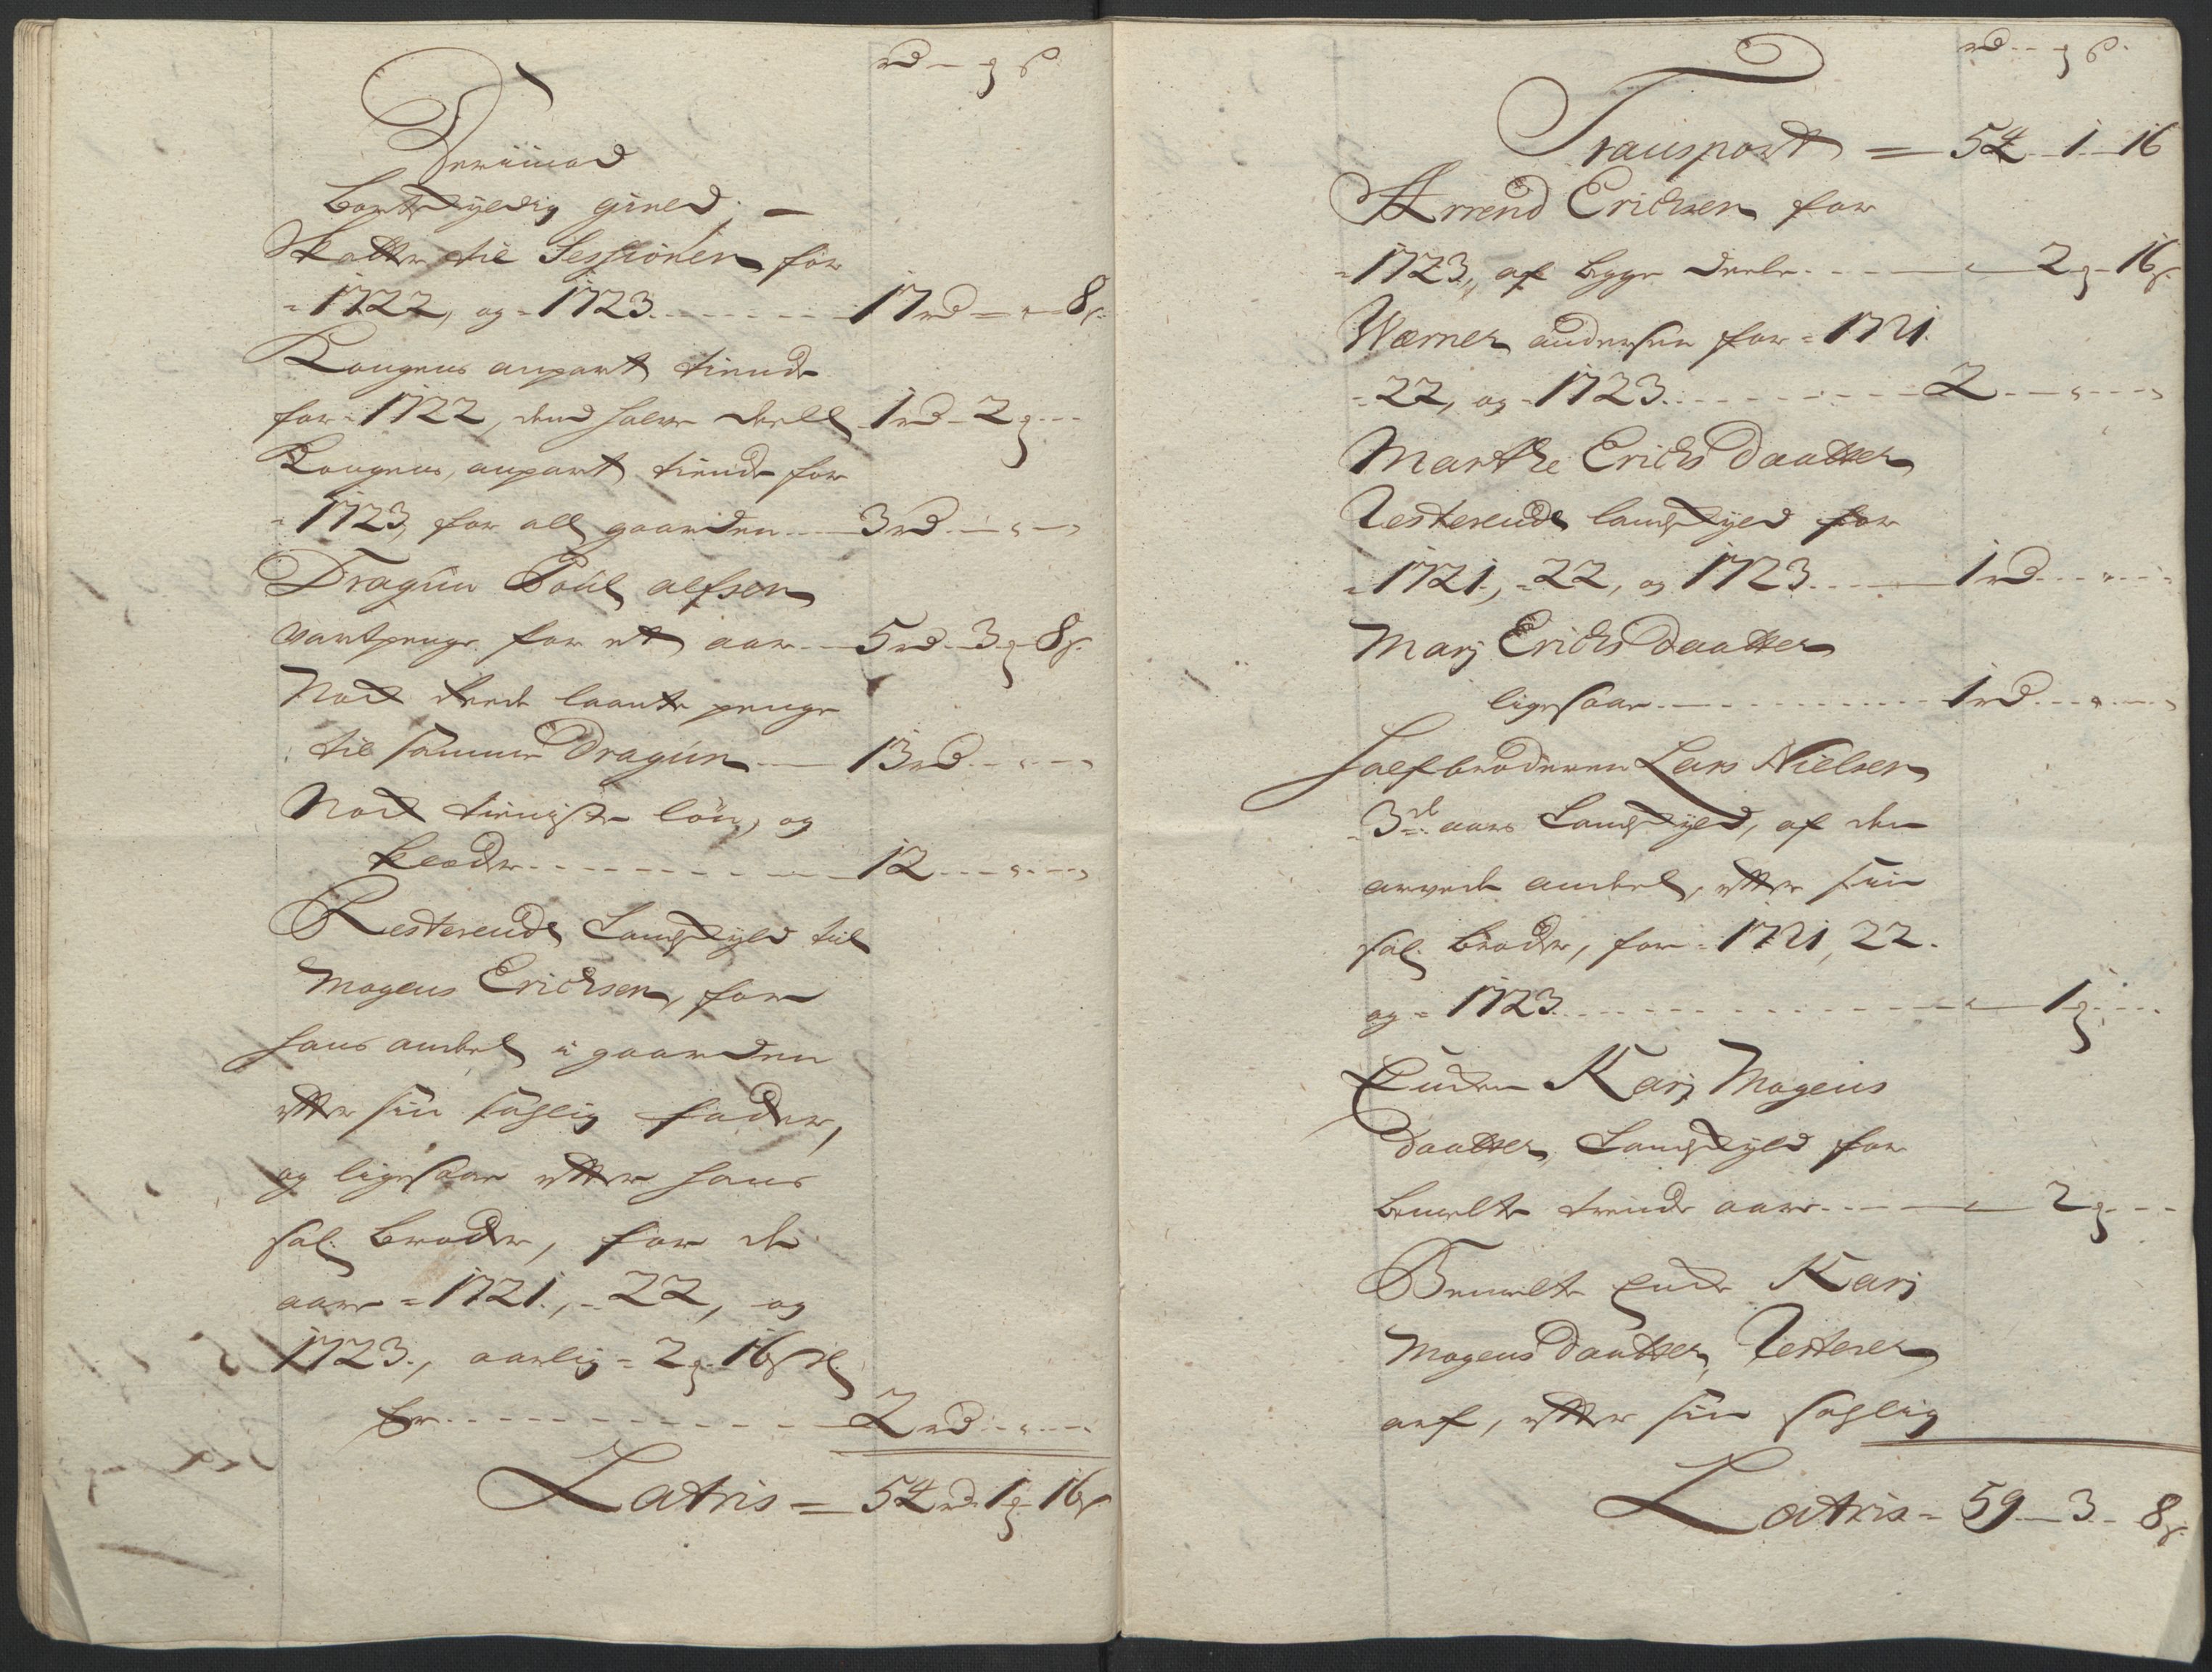 rd — ƶ ß
Derimod
Bortskyldig gields. —
Skatter til Sessionen for
= 1722, og = 1723. - - - - - 17 rd — " — 8 ß.
Kongens anpart tiende
for = 1722, dend halve deell 1 rd - 2 ƶ - -
Kongens anpart tiende for
= 1723, for all gaarden - - 3 rd - - " - -
Dragun Poul alfsøn
qvartpenge for et aar - - 5 rd - 3 ƶ - 8 ß.
Noch laante penge
til samme Dragun - - 13 rd - - " - -
Noch tieniste løn, og
klæder - - - - - - - - 12 - - - " - -
Resterende Landskyld til
Mogens Erichsen, for
hans andeel i gaarden
etter sin sahlig fader,
og ligesaa etter hans
sal. Broder, for de
aar = 1721, = 22, og
1723., aarlig = 2 ƶ - 16 ß er
- - - - - - - - - - - - 2 rd - - " - -
Latris = 54 rd - 1 ƶ - 16 ß
rd - - ƶ ß.
Transport = 54 - 1 - 16
Arrend Erichsen for
= 1723, af begge deele - - - - - 2 ƶ - 16 ß.
Værner andersen for = 1721.
= 22, og = 1723. - - - - - - - 2 - - - " - - -
Marthe Erichs Daatter
Resterende landskyld for
= 1721., = 22, og 1723. - - - - 1 rd - - - " - -
Marj Erichs Daatter
ligesaa - - - - - - - - - 1 rd - - - " - -
Halfbroderen Lars Nielsen
= 3de aars Landskyld, af den
arvede andeel, etter sin
sal. Broder, for = 1721, 22.
og = 1723. - - - - - - - - - - - 1 ƶ - - -
Enken Karj Mogens
Daatter, Landskyld for
bemelte trende aar - - - - - 2 ƶ - - -
Bemelte Enke Karj
Mogens Daatter, Resterer
arf, etter sin sahlig
Latris = 59 - 3 - 8 ß.